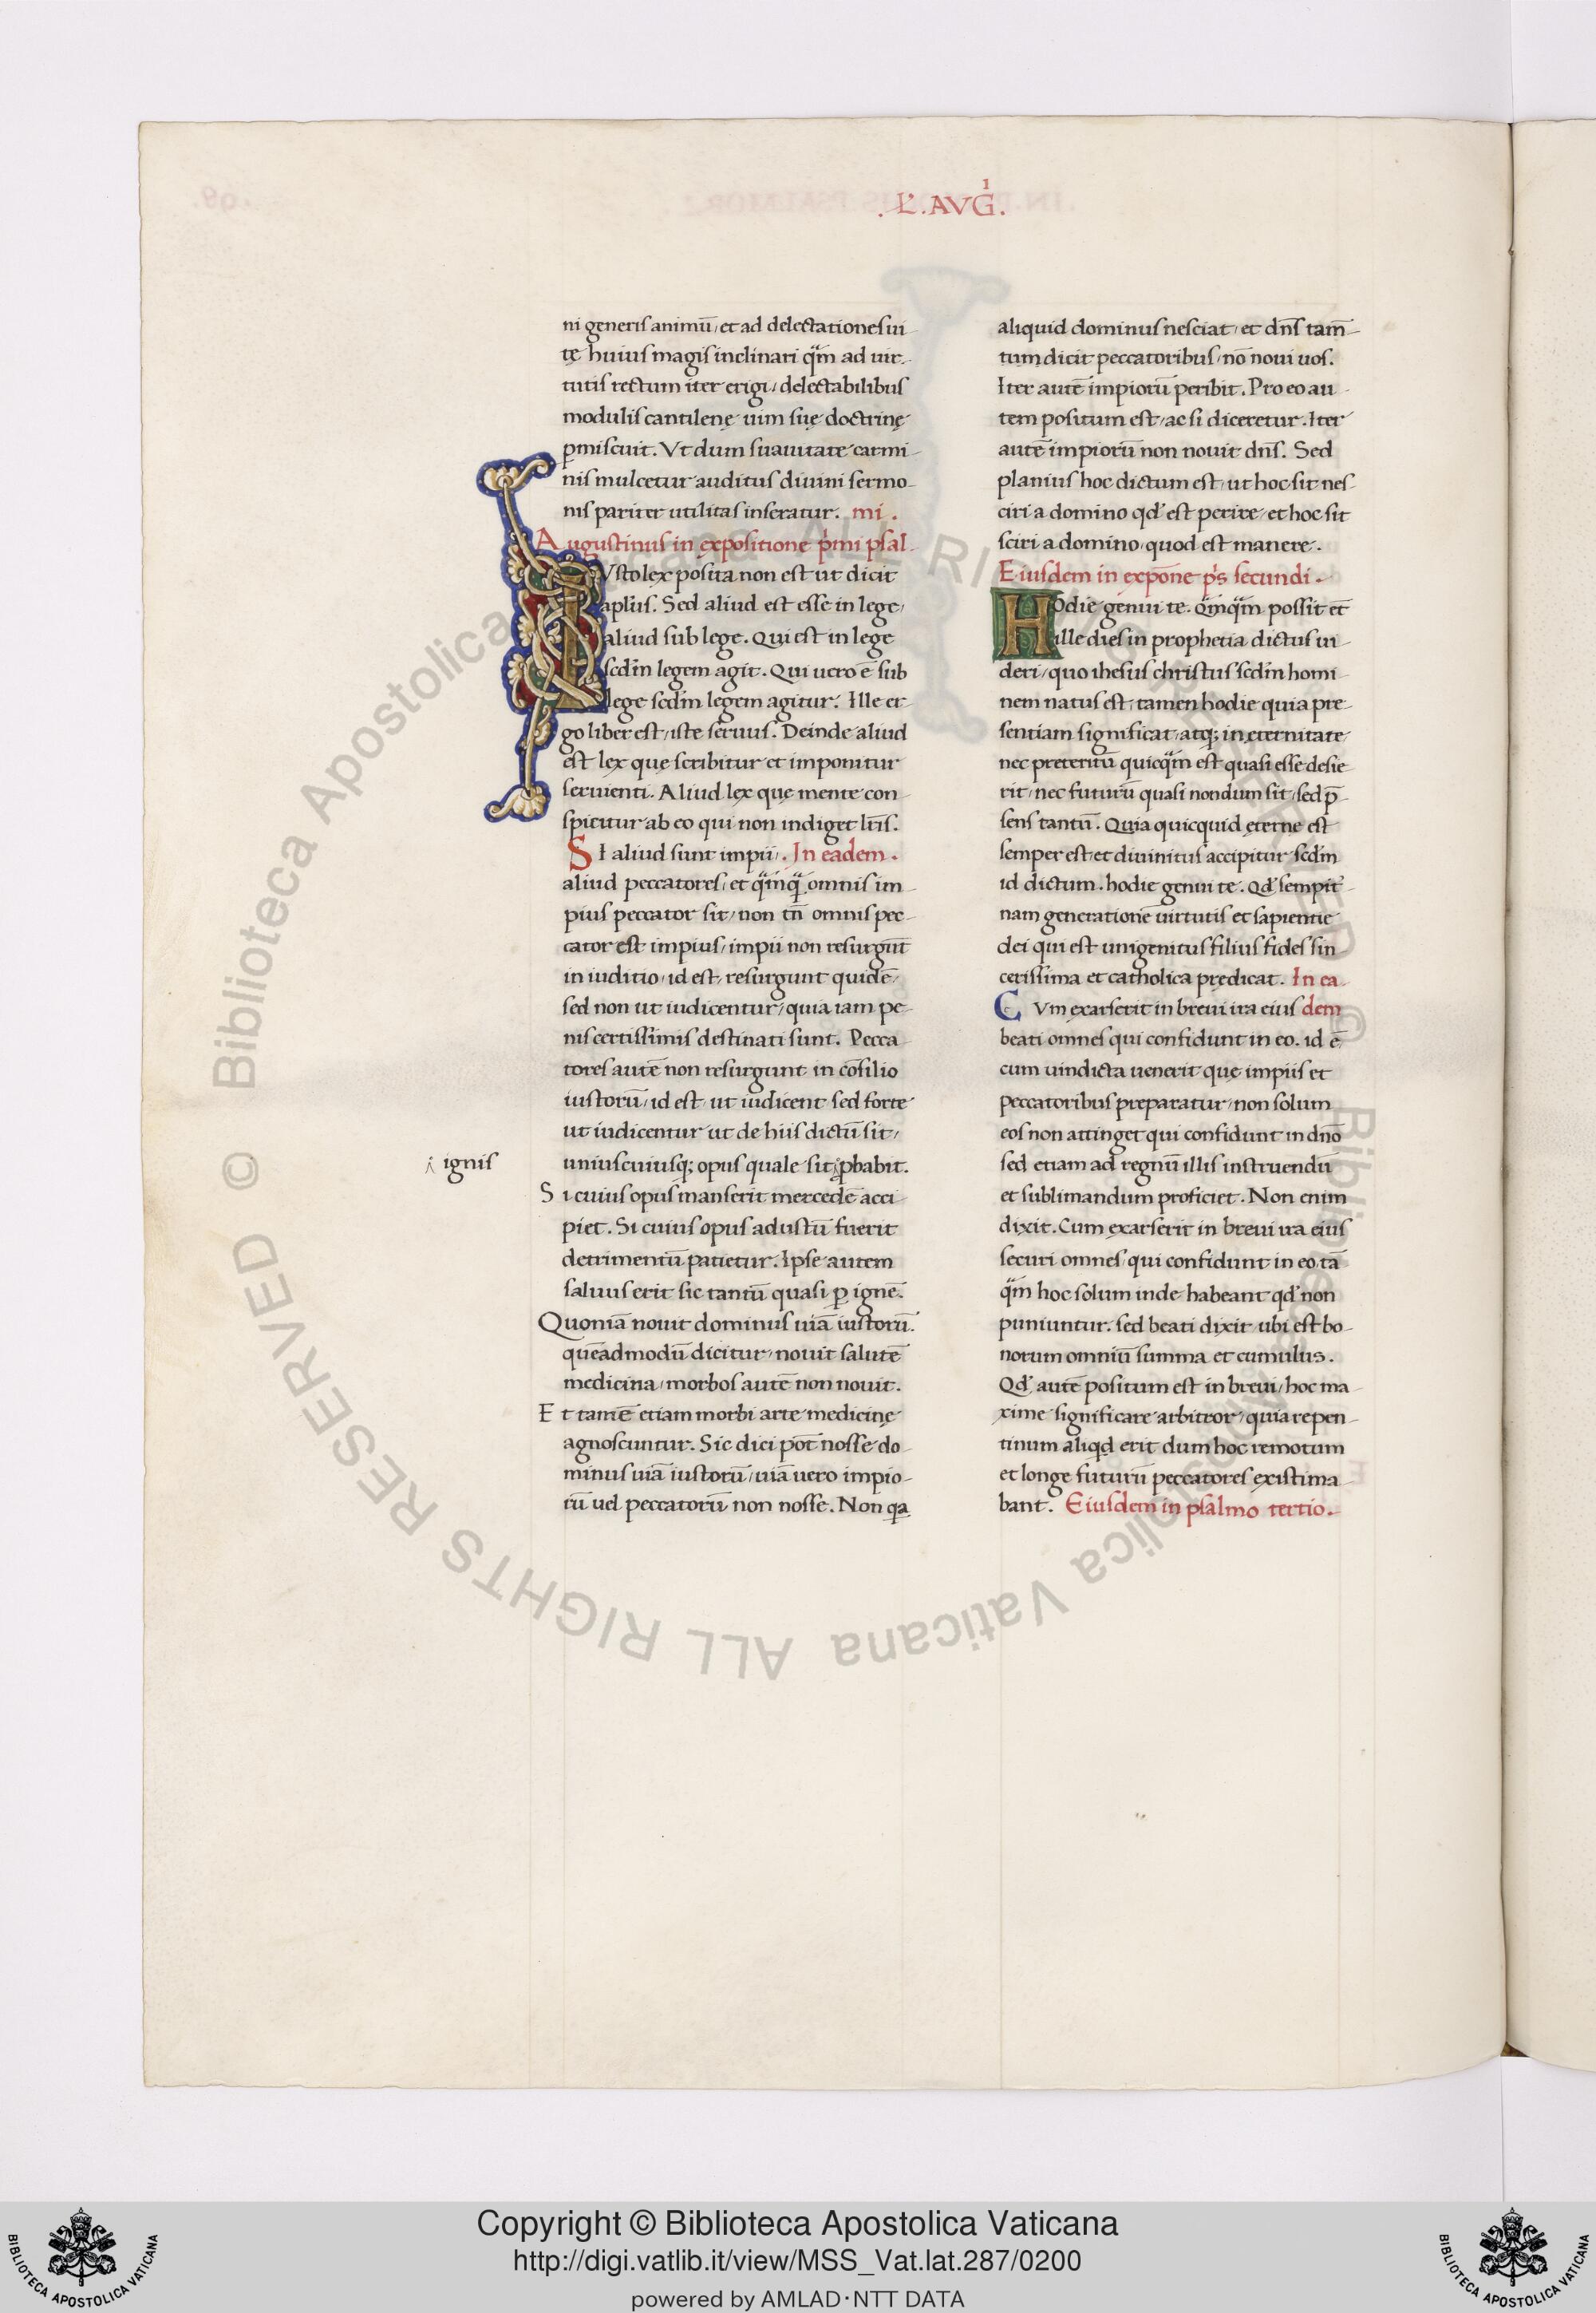 .L̛.AVG̅ͥ.
ni generis animū, et ad delectationes ui-
tę huius magis inclinari qͣm ad uir-
tutis rectum iter erigi, delectabilibus
modulis cantilenę uim suę doctrinę
ꝑmiscuit. Vt dum suauitate carmi-
nis mulcetur auditus diuini sermo-
nis pariter utilitas inseratur. mi.
Augustinus in expositione pͥmi psal-
IVsto lex posita non est ut dicit
aplus̄. Sed aliud est esse in lege,
aliud sub lege. Qui est in lege
scdm̄ legem agit. Qui uero ē sub
lege scdm̄ legem agitur. Ille er-
go liber est, iste seruus. Deinde aliud
est lex quę scribitur et imponitur
seruienti. Aliud lex quę mente con-
spicitur ab eo qui non indiget lr̄is.
SI aliud sunt impii,. In eadem.
aliud peccatores, et qͣmqͣ omnis im-
pius peccator sit, non tn̄ omnis pec-
cator est impius, impii non resurgūt
in iuditio, id est, resurgunt quidē,
sed non ut iudicentur, quia iam pę-
nis certissimis destinati sunt. Pecca-
tores autē non resurgunt in cōsilio
iustorū, id est, ut iudicent sed forte
ut iudicentur ut de hiis dictū sit,
uniuscuiusq; opus quale sit ꝓbabit.
ignis
Si cuius opus manserit mercedē acci-
piet. Si cuius opus adustū fuerit
detrimentū patietur. Ipse autem
saluus erit sic tantū quasi ꝑ ignē.
Quoniā nouit dominus uiā iustorū.
quēadmodū dicitur, nouit salutē
medicina, morbos autē non nouit.
Et tamē etiam morbi arte medicinę
agnoscuntur. Sic dici pōt nosse do-
minus uiā iustorū, uiā uero impio-
rū uel peccatorū non nosse. Non qa
aliquid dominus nesciat, et dn̄s tam̄-
tum dicit peccatoribus, nō noui uos.
Iter autē impiorū peribit. Pro eo au-
tem positum est, ac si diceretur. Iter
autē impiorū non nouit dn̄s. Sed
planius hoc dictum est, ut hoc sit nes-
ciri a domino qd' est perire, et hoc sit
sciri a domino, quod est manere.
Eiusdem in expōne pͥs secundi.
HOdie genui te. Qͣmqͣm possit et̄
ille dies in prophetia dictus ui-
deri, quo ihesus christus scdm̄ homi-
nem natus est, tamen hodie quia pre-
sentiam significat, atq; in ęternitate,
nec preteritū quicqͣm est quasi esse desie-
rit, nec futurū quasi nondum sit, sed p̄-
sens tantū. Quia quicquid ęterne est
semper est, et diuinitus accipitur scdm̄
id dictum. hodie genui te. Qd' sempit̛-
nam generationē uirtutis et sapientię
dei qui est unigenitus filius fides sin
cerissima et catholica prędicat. In ea
CVm exarserit in breui ira eius dem
beati omnes qui confidunt in eo. id ē,
cum uindicta uenerit quę impiis et
peccatoribus preparatur, non solum
eos non attinget qui confidunt in dn̄o
sed etiam ad regnū illis instruendū
et sublimandum proficiet. Non enim
dixit. Cum exarserit in breui ira eius
securi omnes, qui confidunt in eo, tā
qͣm hoc solum inde habeant qd' non
puniuntur. sed beati dixit, ubi est bo-
norum omniū summa et cumulus.
Qd' autē positum est in breui, hoc ma-
xime significare arbitror, quia repen-
tinum aliqd erit dum hoc remotum
et longe futurū peccatores existima-
bant. Eiusdem in psalmo tertio.
© Biblioteca Apostolica Vaticana ALL RIGHTS RESERVED © Biblioteca Apostolica Vaticana ALL RIGHTS RESERVED
Copyright © Biblioteca Apostolica Vaticana
http://digi.vatlib.it/view/MSS_Vat.lat.287/0200
powered by AMLAD·NTT DATA
BIBLIOTECA APOSTOLICA VATICANA
BIBLIOTECA APOSTOLICA VATICANA